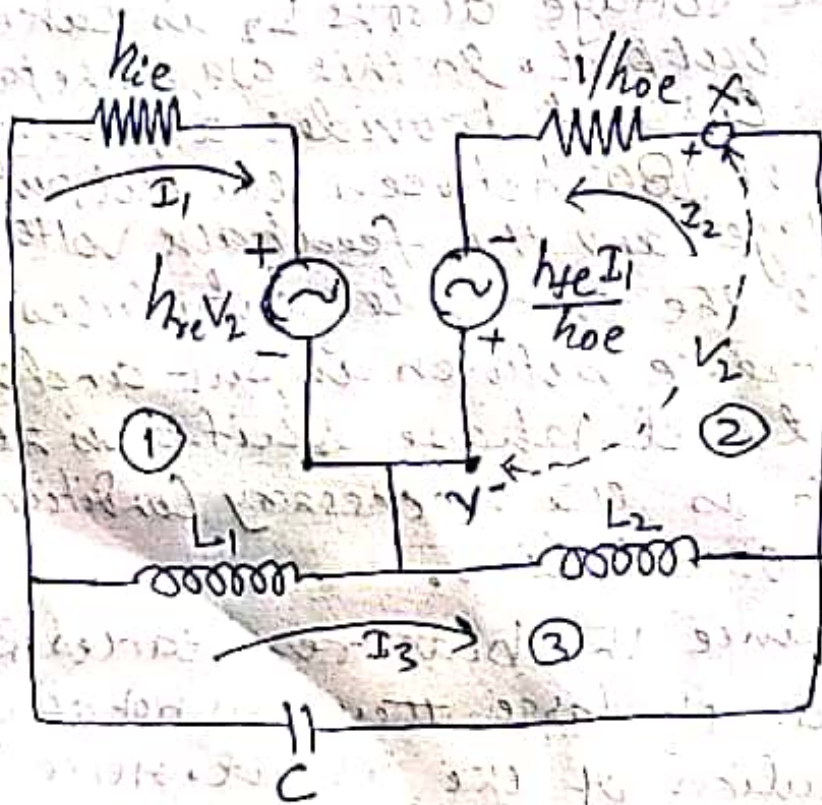 hie
1/hoe
X
+
I₁
I₂
+
-
hreV₂
hfeI₁
hoe
-
+
V₂
①
②
Y
-
L₁
L₂
I₃
③
C